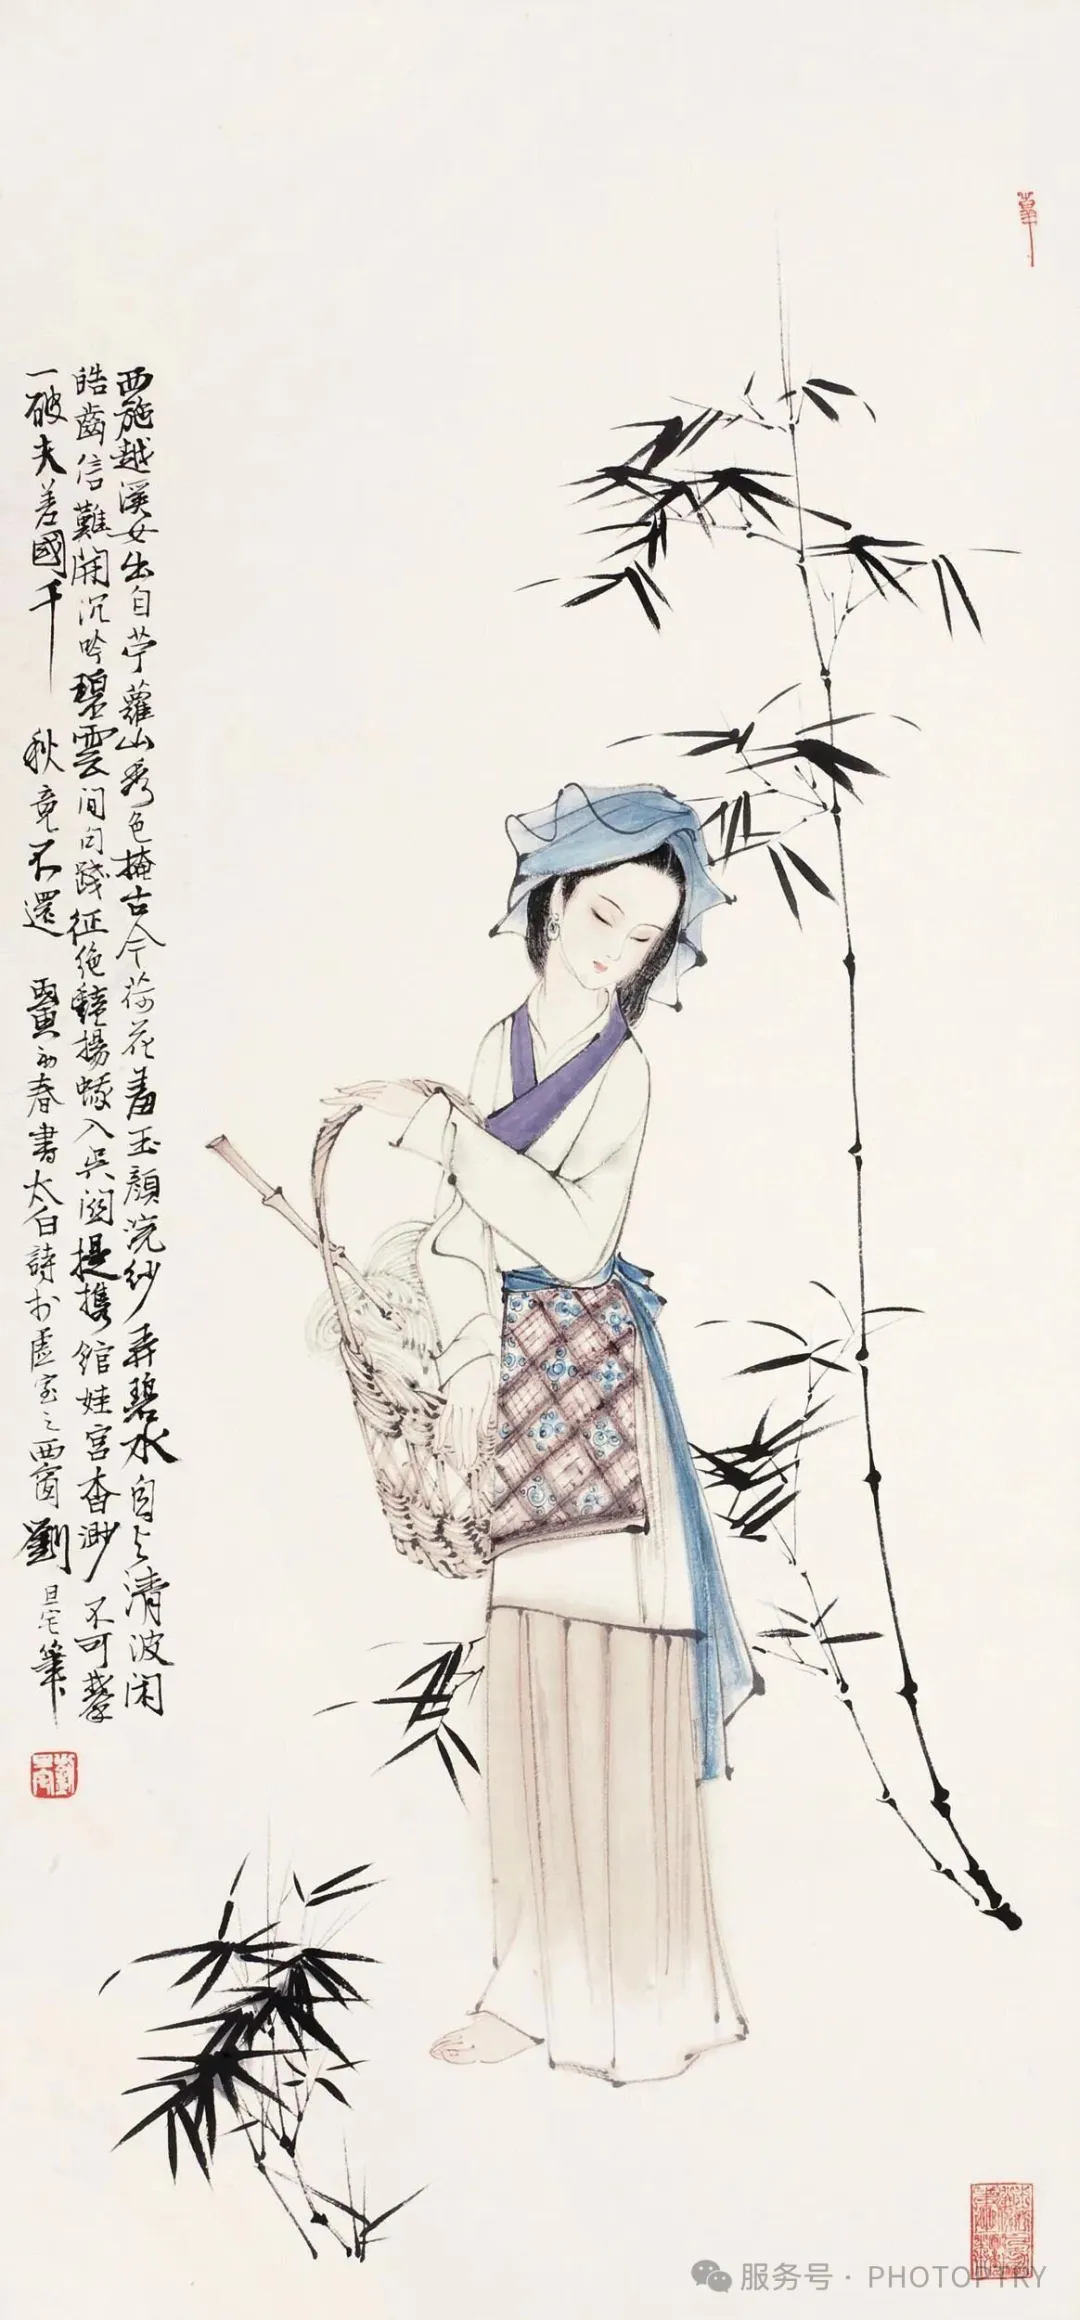 西施越溪女出自苧蘿山秀色掩古今荷花羞玉顏浣紗弄碧水自与清波闲
皓齒信難開沉吟碧雲间句踐征绝艷揚蛾入吴關提攜館娃宮杳渺不可攀
一破夫差國千秋竟不還 春書太白詩於虛室之西窗劉旦宅筆
服务号 · PHOTOPTRY